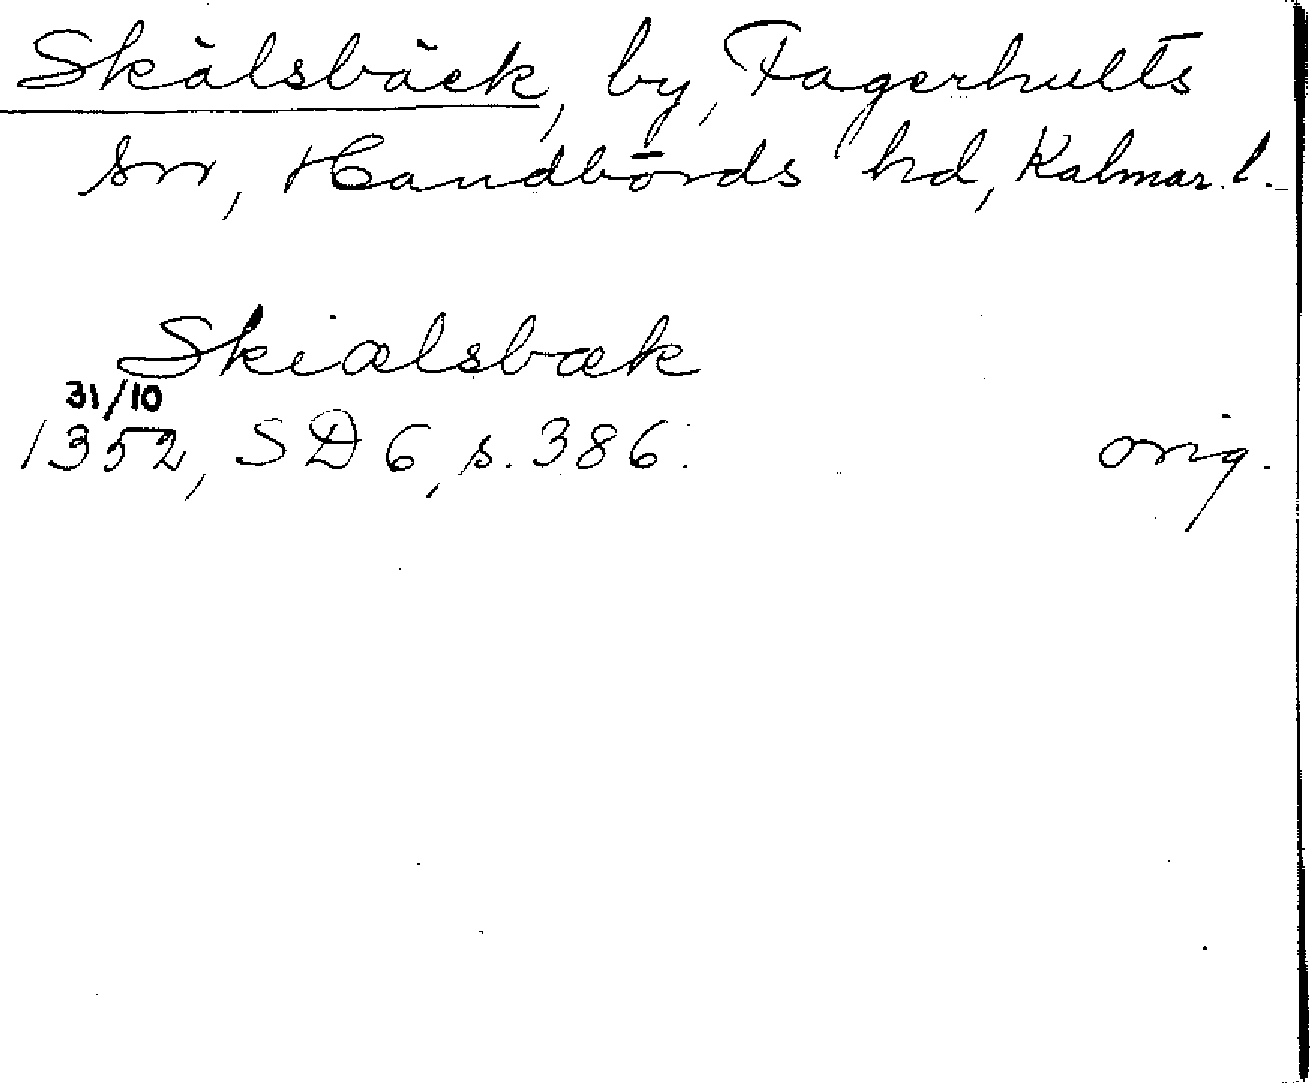 Skälsbäck, by, Fagerhults
sn, Handbörds hd, Kalmar l.
Skiælsbæk
31/10
1352, SD 6, s. 386.
orig.